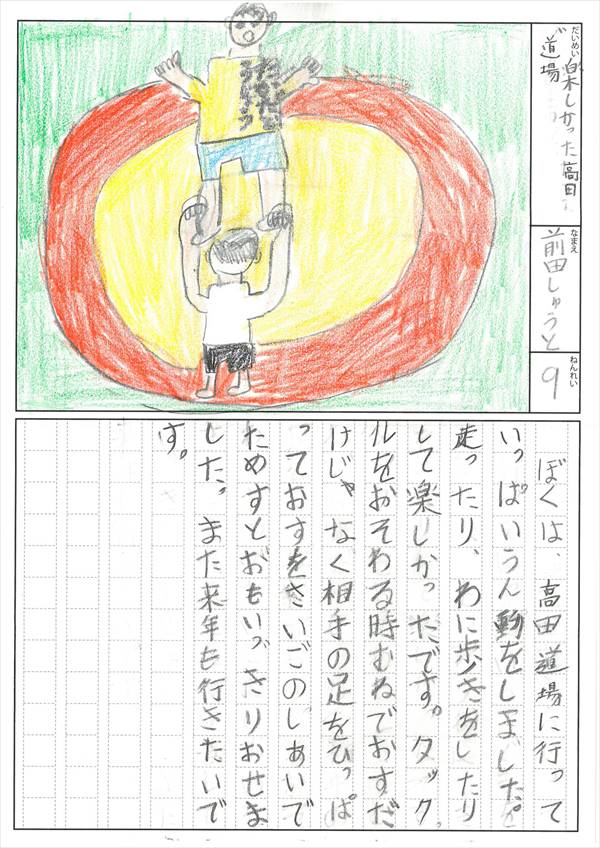 だいめい
楽しかった高田
道場
なまえ
前田しゅうと
ねんれい
9
ぼくは、高田道場に行って
いっぱいうん動をしました。
走ったり、わに歩きをしたり
して楽しかったです。タック
ルをおそわる時むねでおすだ
けじゃなく相手の足をひっぱ
っておすをさいごのしあいで
ためすとおもいっきりおせま
した。また来年も行きたいで
す。